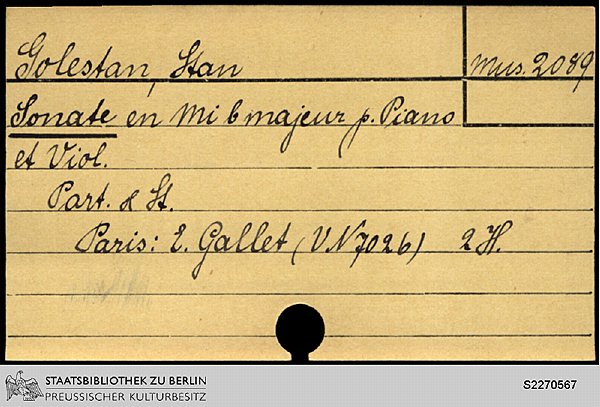 Golestan, Stan
Mus. 2089
Sonate en Mi b majeur p. Piano
et Viol.
Part. & St.
Paris: E. Gallet (V.N 7026) 2 H.
STAATSBIBLIOTHEK ZU BERLIN
PREUSSISCHER KULTURBESITZ
S2270567